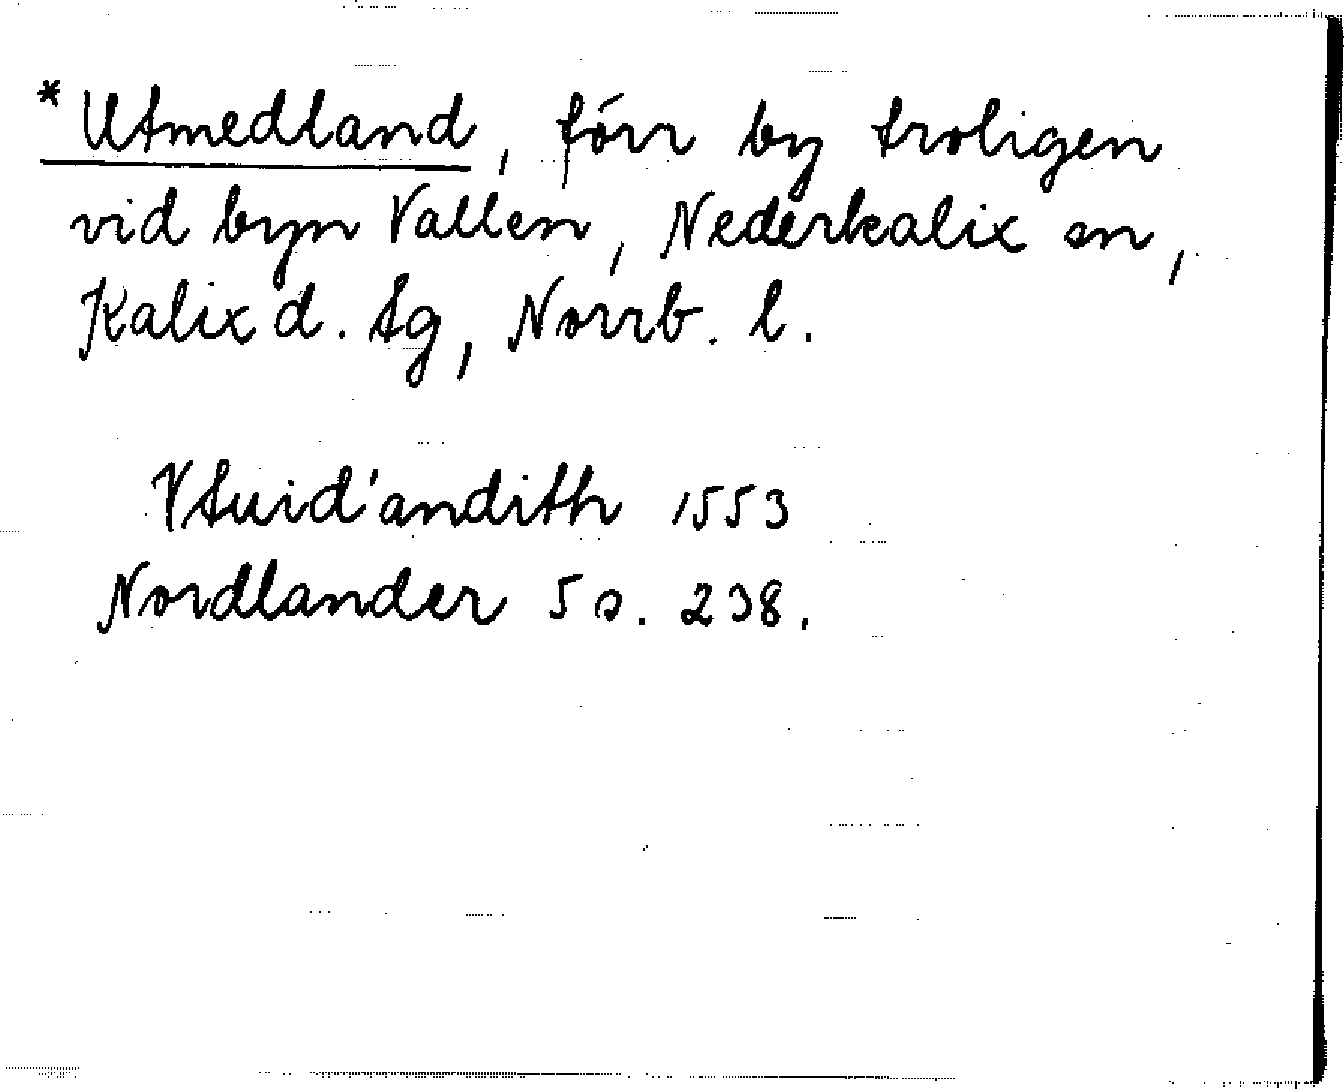 * Utmedland, förr by troligen
vid byn Vallen, Nederkalix sn,
Kalix d. tg, Norrb. l.
Vtuid'andith 1553
Nordlander 5 s. 238.